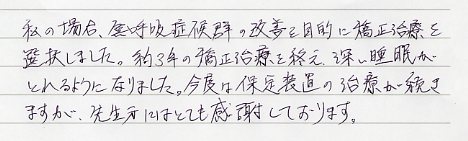 私の場合、無呼吸症候群の改善を目的に矯正治療を
選択しました。約3年の矯正治療を終え、深い睡眠が
とれるようになりました。今度は保定装置の治療が続き
ますが、先生方にはとても感謝しております。